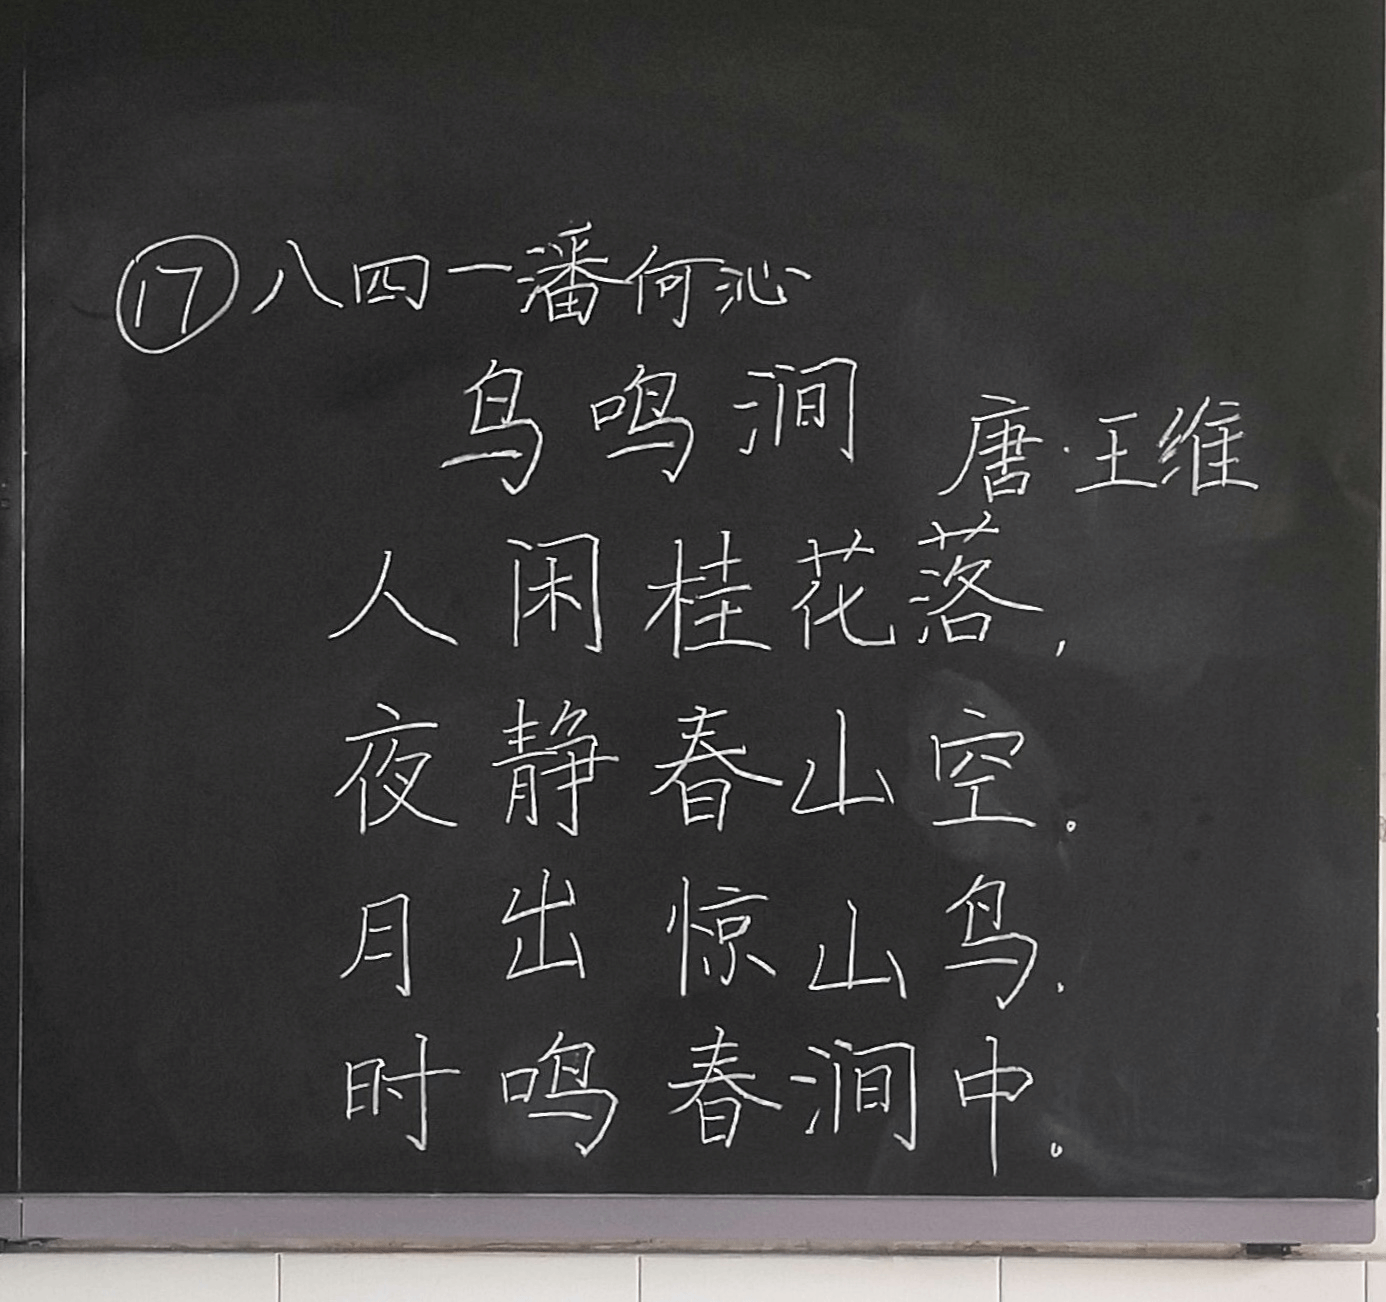 ⑰八四一潘何沁
鸟鸣涧 唐·王维
人闲桂花落,
夜静春山空。
月出惊山鸟.
时鸣春涧中。